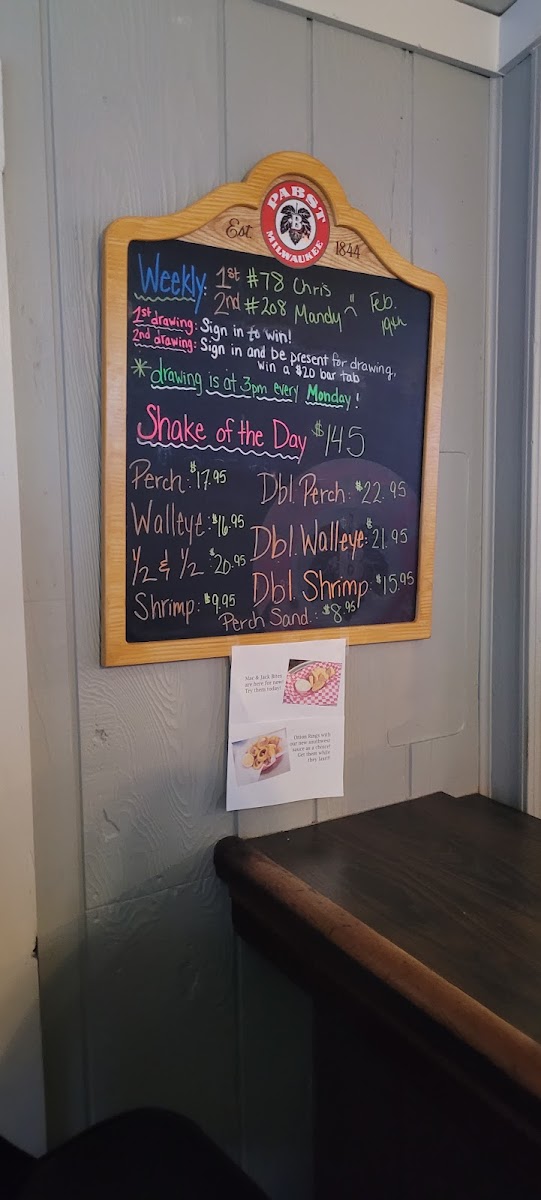 PABST
B
MILWAUKEE
Est. 1844
Weekly: 1st #78 Chris
2nd #208 Mandy Feb. 19th
1st drawing: Sign in to win!
2nd drawing: Sign in and be present for drawing,
win a $20 bar tab
*drawing is at 3pm every Monday!
Shake of the Day $145
Perch: $17.95
Dbl. Perch: $22.95
Walleye: $16.95
Dbl. Walleye: $21.95
1/2 & 1/2 $20.95
Dbl. Shrimp: $15.95
Shrimp: $9.95
Perch Sand.: $8.95
Mac & Jack Bites
are here for now!
Try them today!
Onion Rings with
our new southwest
sauce as a choice!
Get them while
they last!